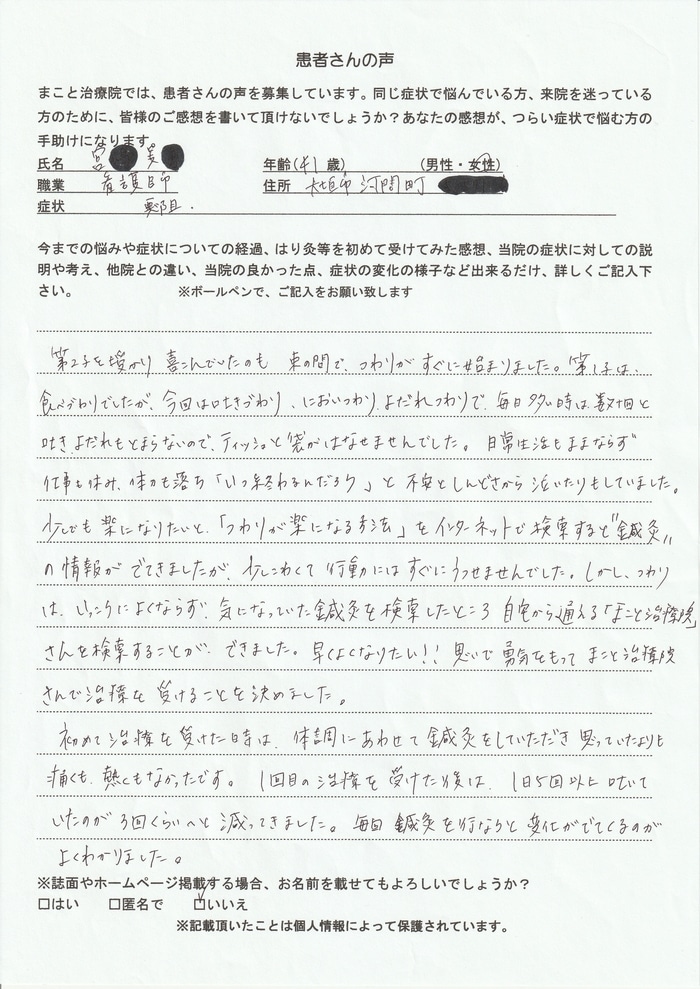 患者さんの声
まこと治療院では、患者さんの声を募集しています。同じ症状で悩んでいる方、来院を迷っている
方のために、皆様のご感想を書いて頂けないでしょうか？あなたの感想が、つらい症状で悩む方の
手助けになります。
氏名 宮 美 年齢（41歳） （男性・女性）
職業 看護師 住所 大垣市 河間町
症状 悪阻.
今までの悩みや症状についての経過、はり灸等を初めて受けてみた感想、当院の症状に対しての説
明や考え、他院との違い、当院の良かった点、症状の変化の様子など出来るだけ、詳しくご記入下
さい。 ※ボールペンで、ご記入をお願い致します
第2子を授かり 喜こんでいたのも 束の間で、つわりがすぐに始まりました。第1子は、
食べづわりでしたが、今回は吐きづわり、においつわり、よだれつわりで、毎日多い時は数十回と
吐き、よだれもとまらないので、ティッシュと袋がはなせませんでした。日常生活もままならず
仕事も休み、体力も落ち「いつ終わるんだろう」と 不安としんどさから泣いたりもしていました。
少しでも楽になりたいと、「つわりが楽になる方法」をインターネットで検索すると"鍼灸"
の情報が でてきましたが、少しこわくて行動にはすぐにうつせませんでした。しかし、つわり
は、いっこうによくならず、気になっていた鍼灸を検索したところ 自宅から通える「まこと治療院」
さんを検索することが、できました。早くよくなりたい！！思いで 勇気をもって まこと治療院
さんで治療を受けることを決めました。
初めて治療を受けた日時は、体調にあわせて鍼灸をしていただき 思っていたよりも
痛くも、熱くもなかったです。1回目の治療を受けた後は、1日5回以上吐いて
いたのが3回くらいへと減ってきました。毎回 鍼灸を行ならと変化がでてくるのが
よくわかりました。
※誌面やホームページ掲載する場合、お名前を載せてもよろしいでしょうか？
□はい □匿名で ☑いいえ
※記載頂いたことは個人情報によって保護されています。